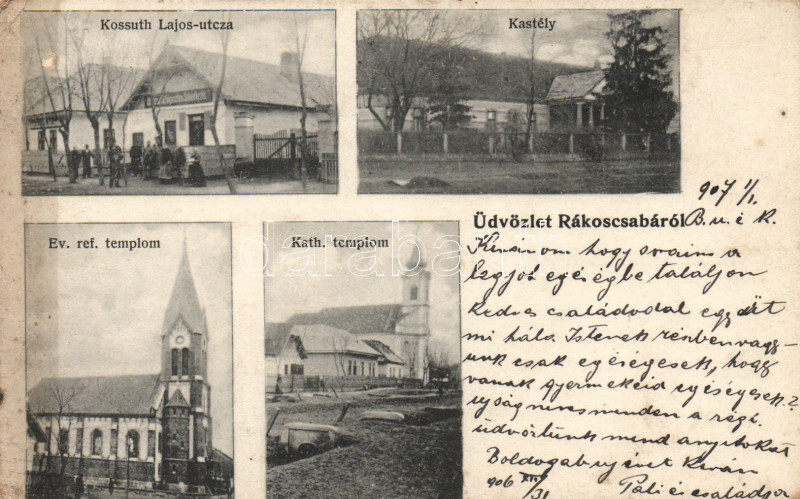 Kossuth Lajos-utcza
Kastély
Ev. ref. templom
Kath. templom
darabanth
Üdvözlet Rákoscsabáról
907 1/1
B. u. é. k.
Kivánom hogy soraim a
legjob egéségbe találjon
kedves családodal együtt
mi hála Istenek részben vagy-
unk csak egéségesek, hogy
vanak gyermekeid egéségesek?
ujság nincs minden a régi
üdvözlünk mind anyitokat
Boldogab uj évet kiván
906 XII/31
Pali és családja